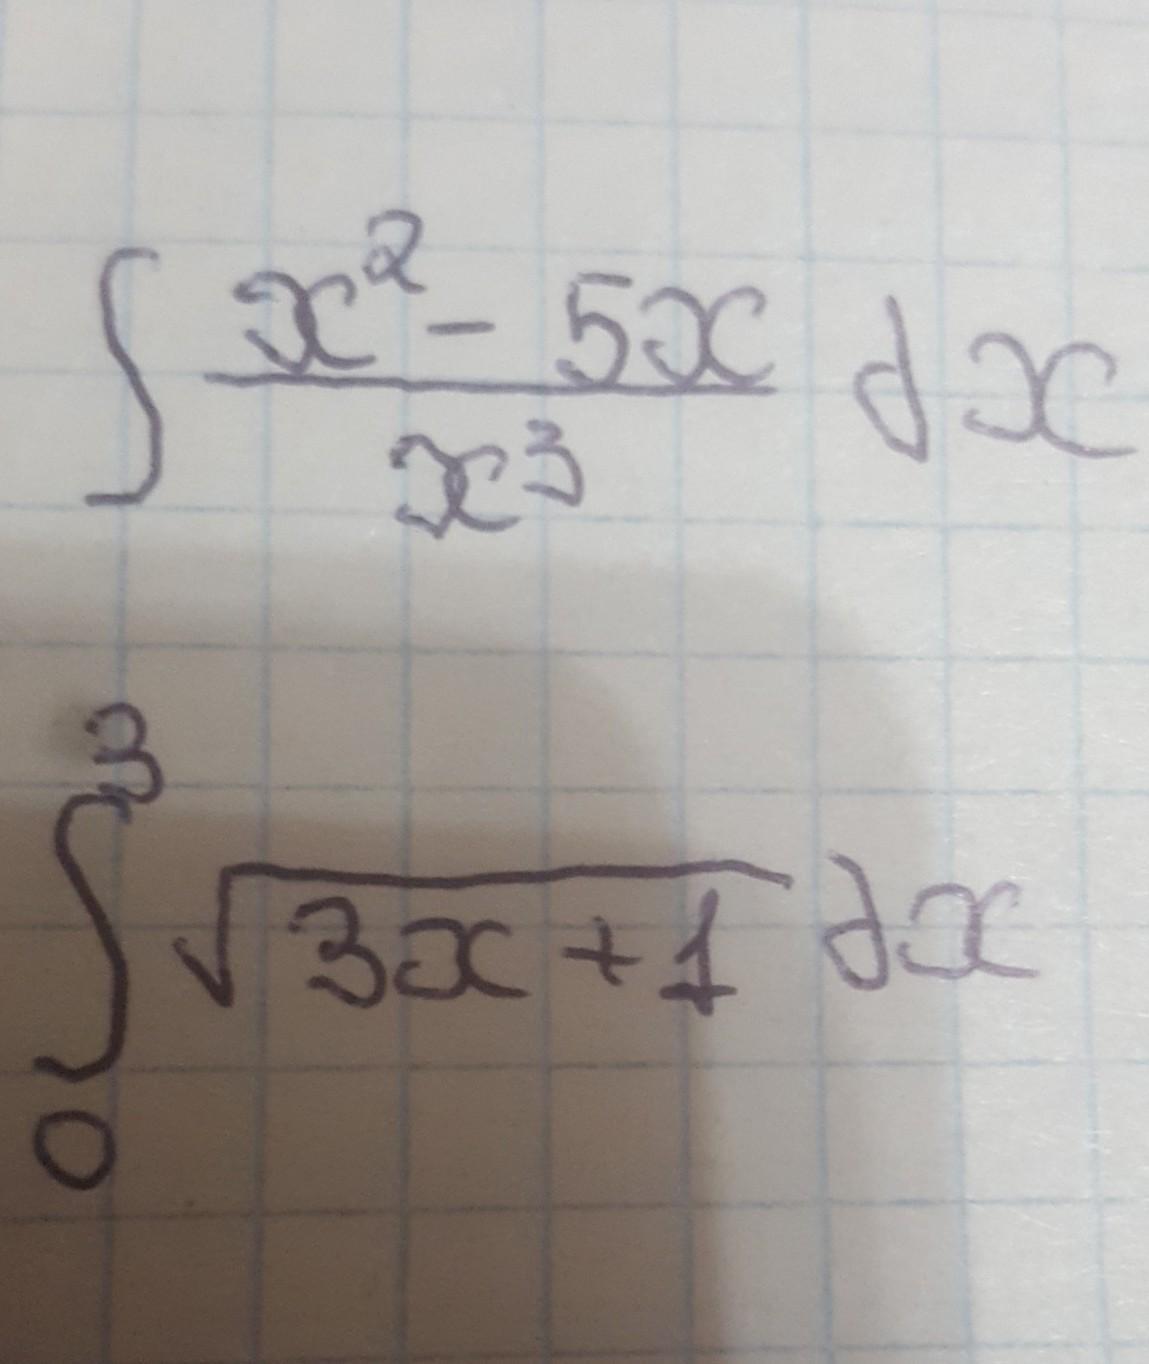 ∫ (x² - 5x)/x³ dx
∫₀³ √(3x + 1) dx